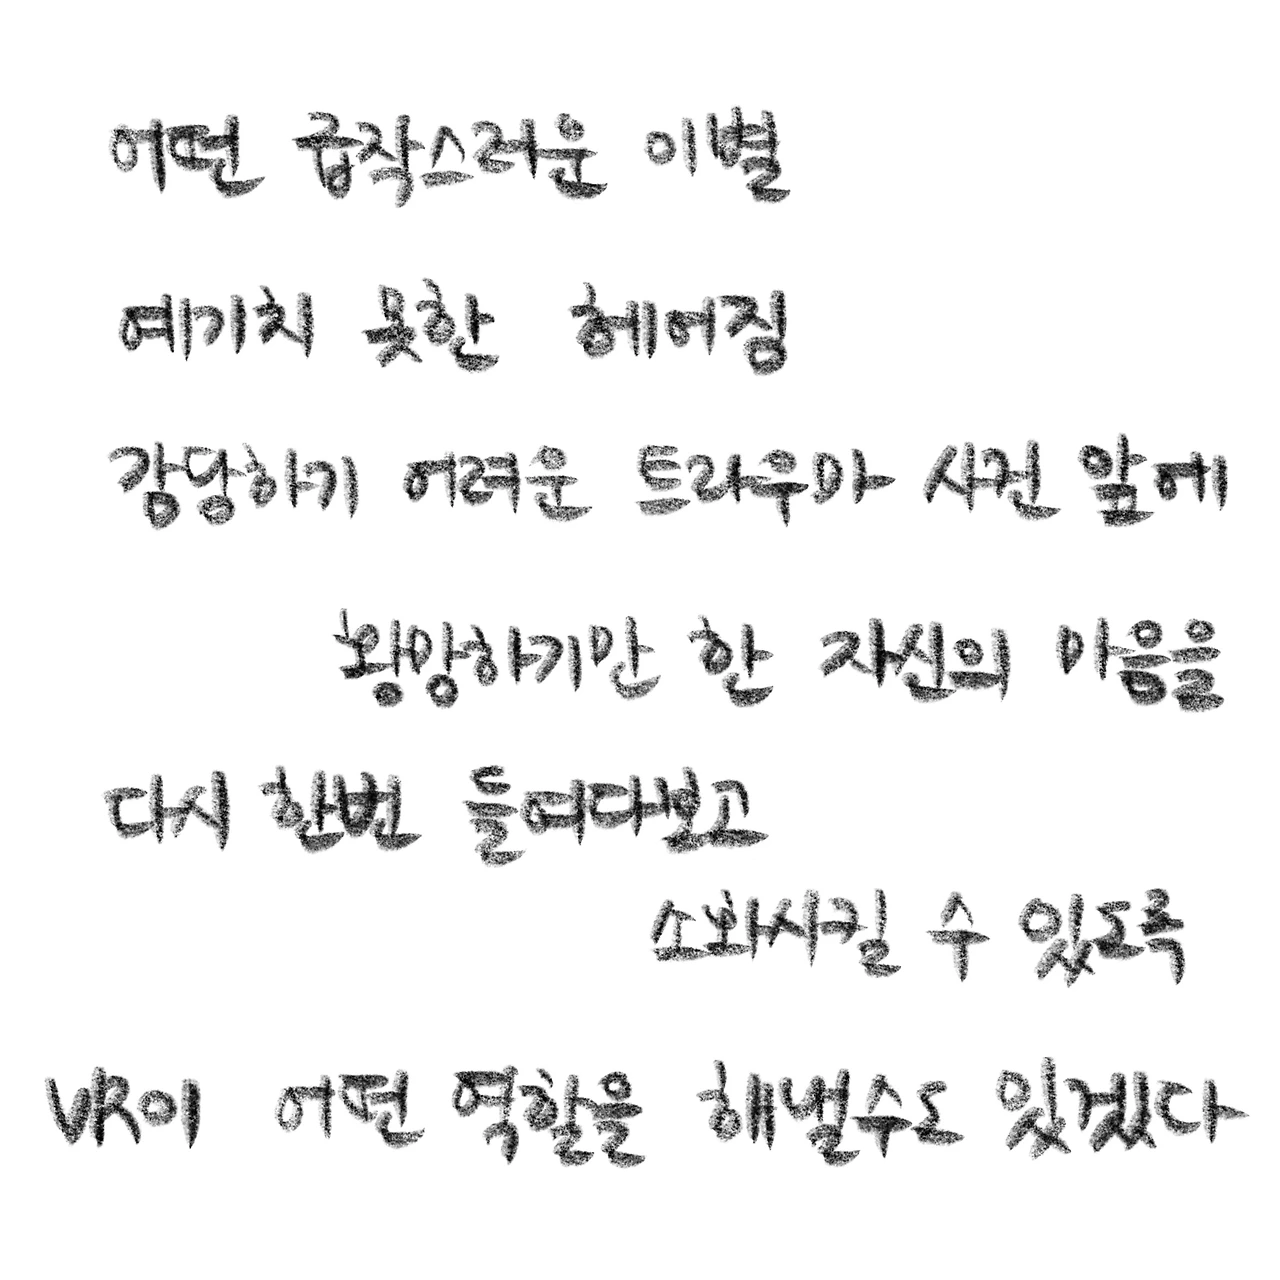 어떤 급작스러운 이별
예기치 못한 헤어짐
감당하기 어려운 트라우마 사건 앞에
황망하기만 한 자신의 마음을
다시 한번 들여다보고
소화시킬 수 있도록
VR이 어떤 역할을 해낼수도 있겠다